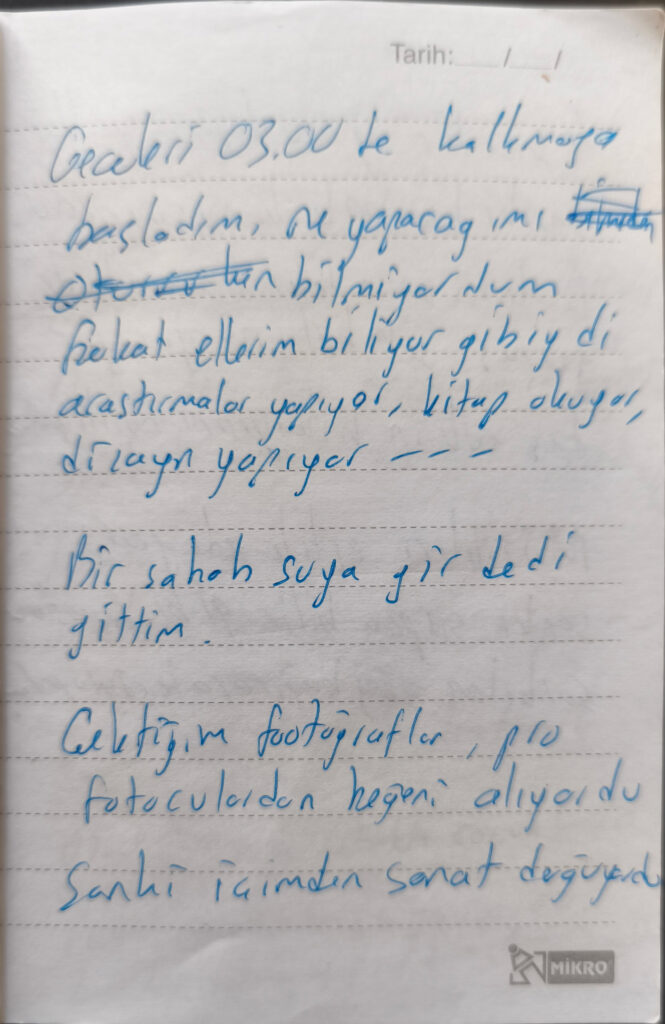 Tarih: / /
Geceleri 03.00 te kalkmaya
başladım, ne yapacağımı
bilmiyordum
fakat ellerim biliyor gibiydi
araştırmalar yapıyor, kitap okuyor,
dizayn yapıyor ---
Bir sabah suya gir dedi
gittim.
Çektiğim footoğraflar, pro
fotoculardan beğeni alıyordu
Sanki içimden sanat doğuyordu
MİKRO